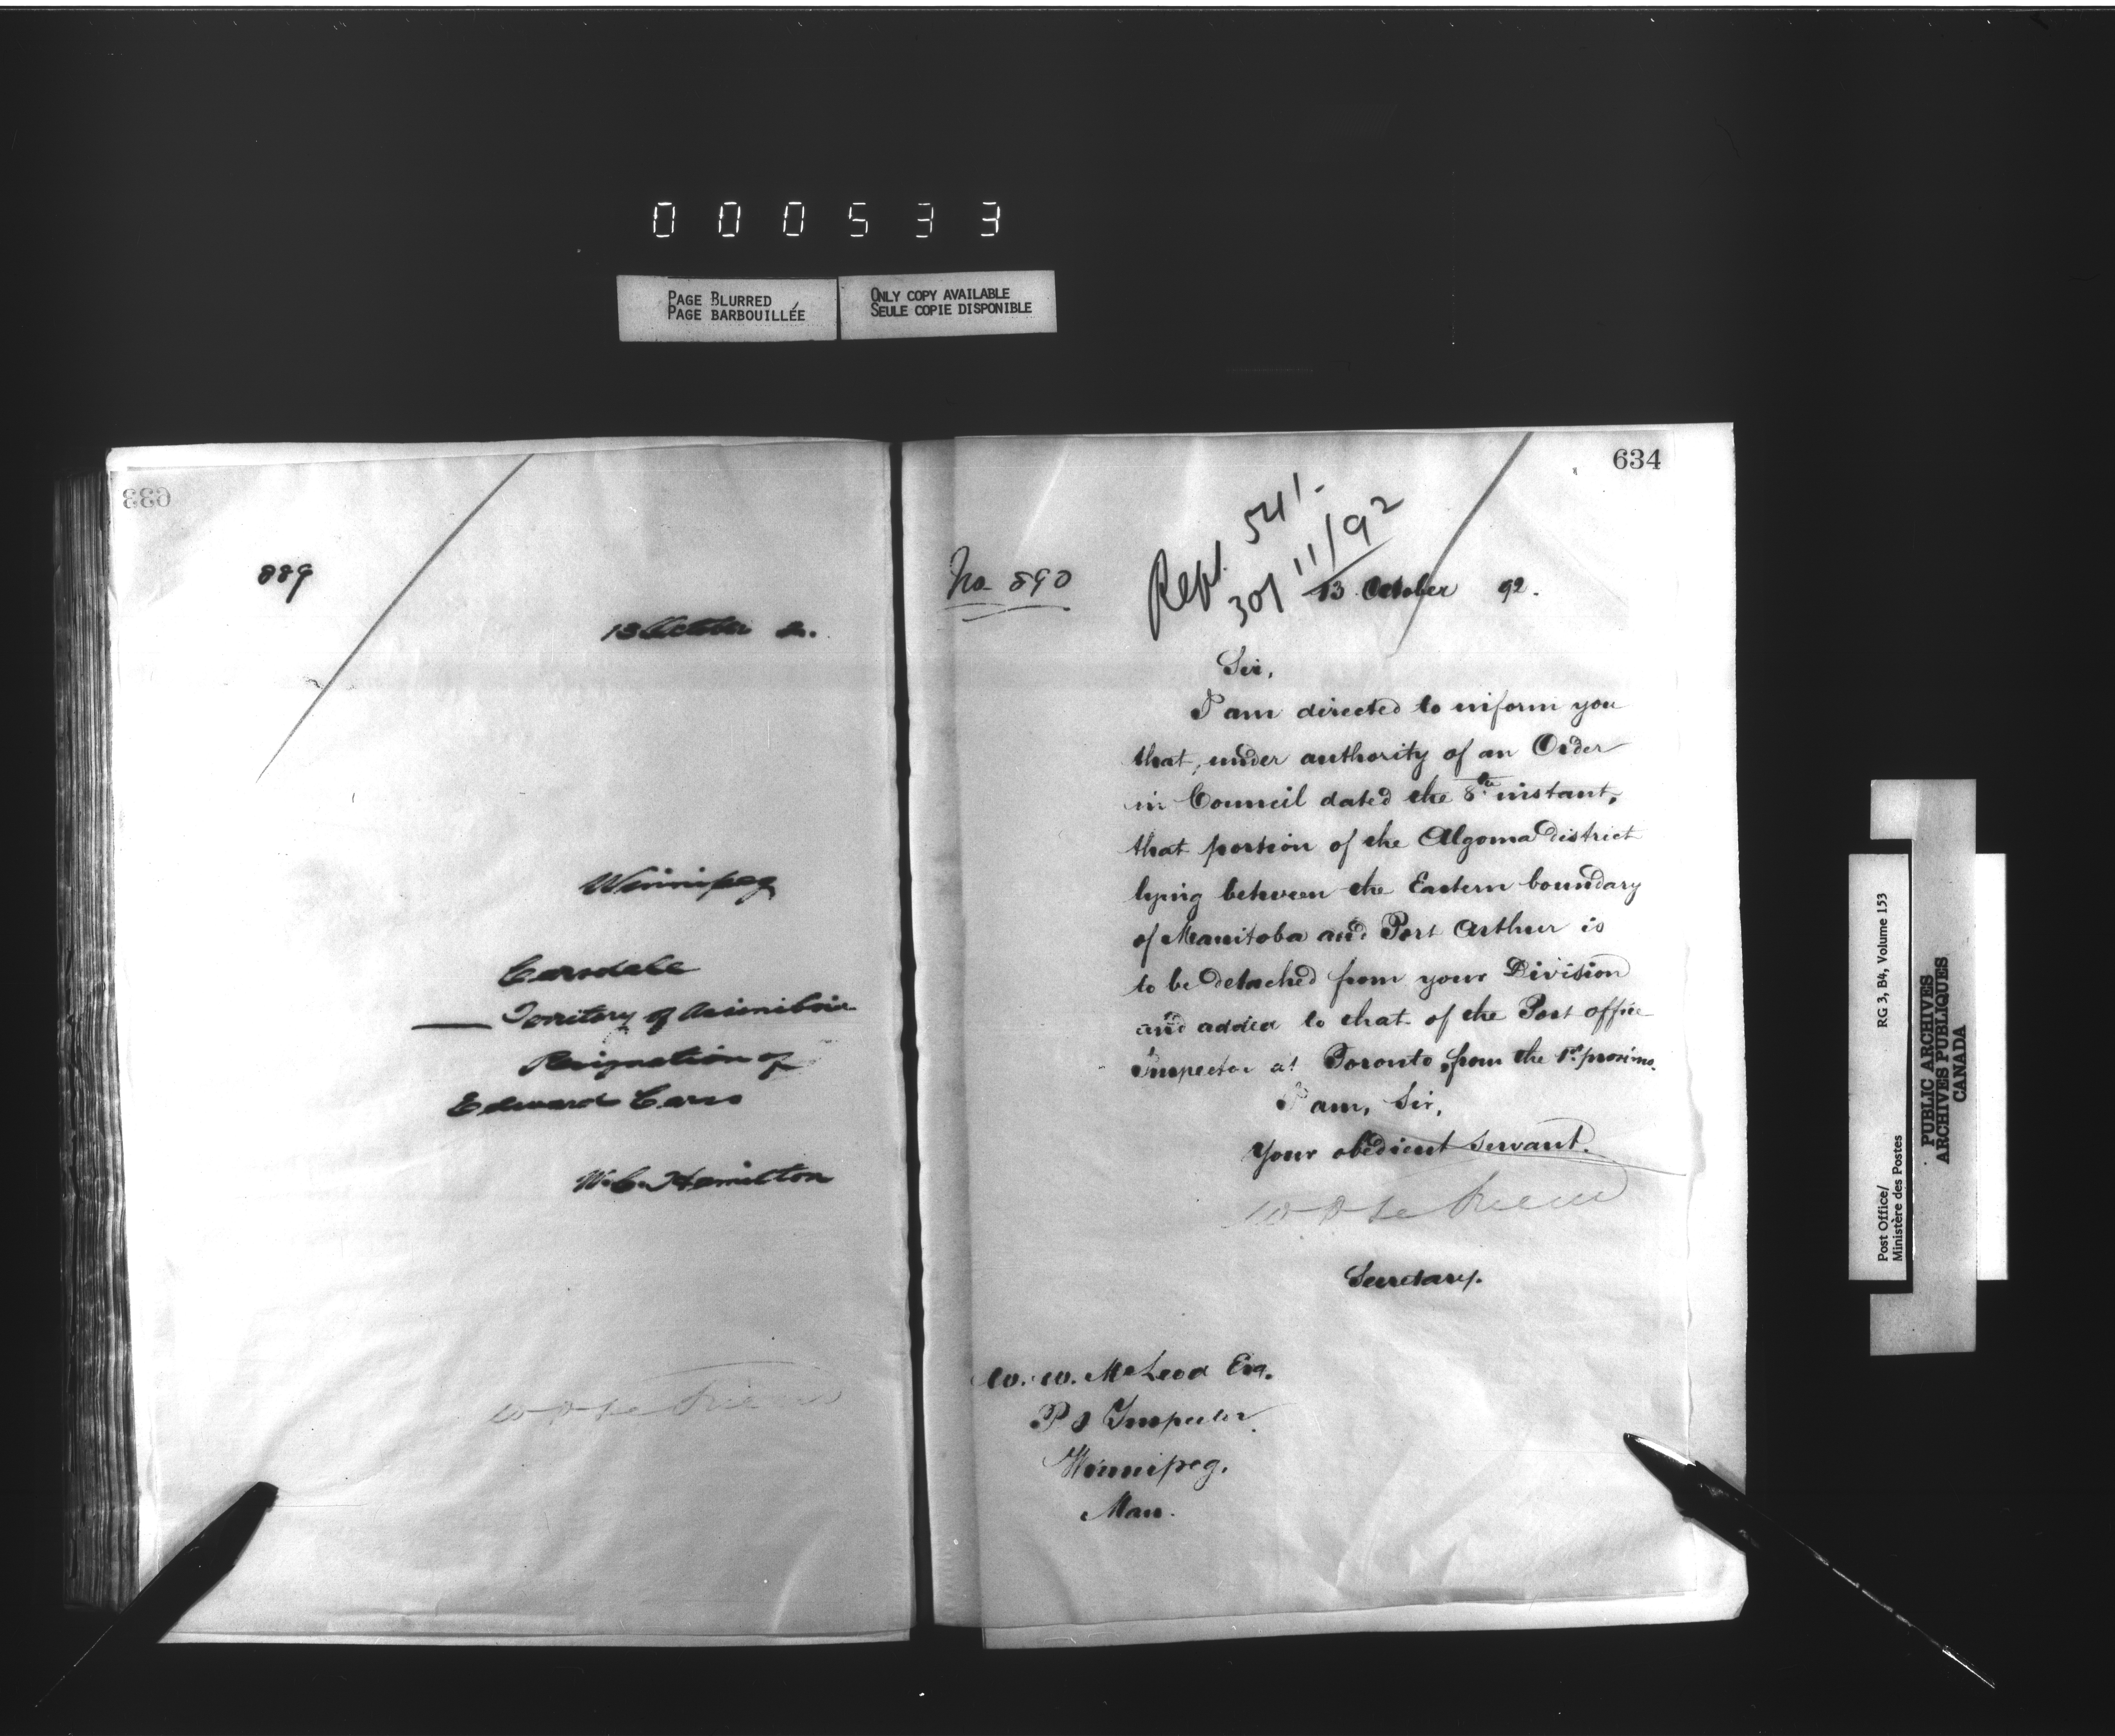 000533
PAGE BLURRED
PAGE BARBOUILLÉE
ONLY COPY AVAILABLE
SEULE COPIE DISPONIBLE
633
889
13 October 2.
Winnipeg
Carsdale
Territory of Assiniboia
Resignation of
Edward Carss
W. C. Hamilton
634
No 890
Rept. 541-
30/11/92
13 October 92.
Sir,
I am directed to inform you
that, under authority of an Order
in Council dated the 8th instant,
that portion of the Algoma District
lying between the Eastern boundary
of Manitoba and Port Arthur is
to be detached from your Division
and added to that of the Post office
Inspector at Toronto, from the 1st proximo.
I am, Sir,
Your obedient servant.
Secretary.
W. W. McLeod Esq.
P O Inspector
Winnipeg.
Man.
Post Office/
Ministère des Postes
RG 3, B4, Volume 153
PUBLIC ARCHIVES
ARCHIVES PUBLIQUES
CANADA